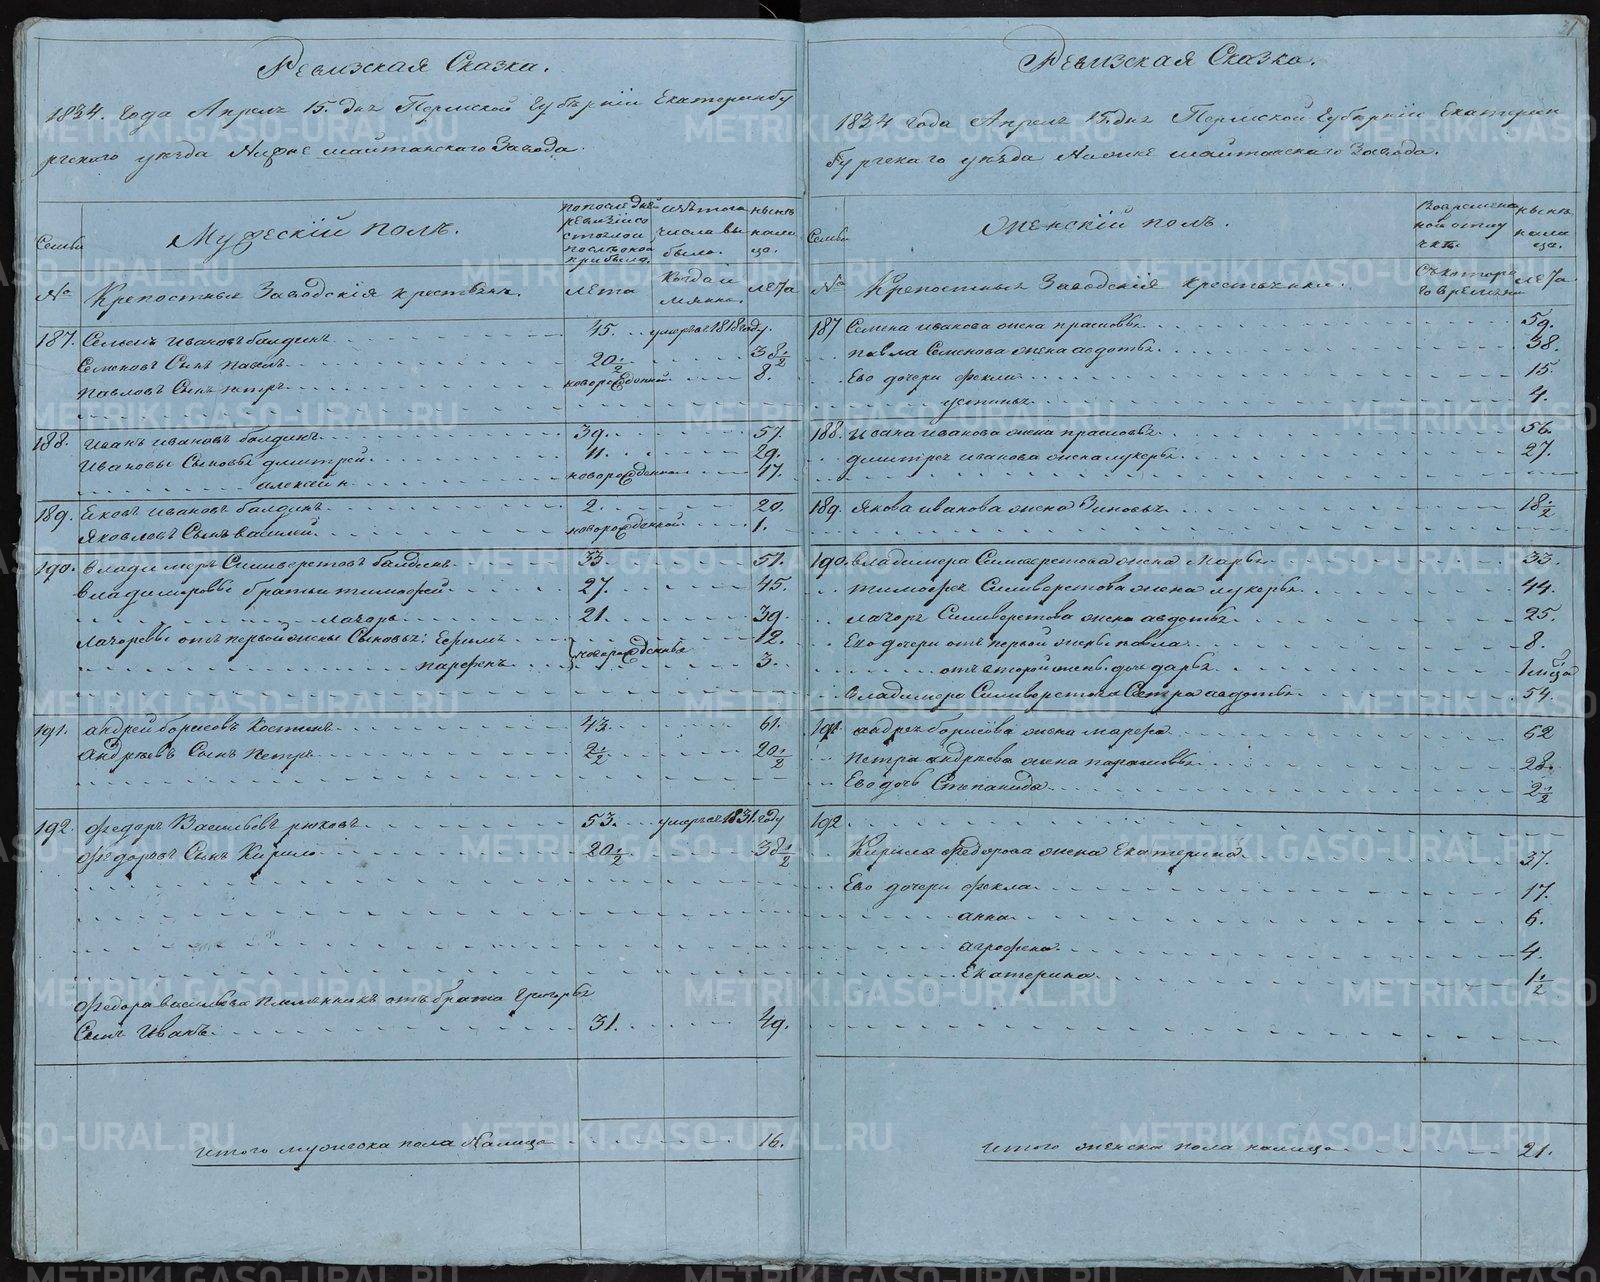 Ревизская Сказка.
1834. года Апреля 15. дня Пермской Губернiи Екатеринбу
ргскаго уезда Нижне шайтанскаго Завода.
Семьи
Мужескiй полъ.
по последней ревизiи состояло и после оной прибыло.
изъ того числа выбыло.
ныне на лицо.
№
Крепостныя Заводскiя крестьяне.
лета
Когда и
лета
187. Семенъ Ивановъ балдинъ 45. умеръ в 1818 году.
Семеновъ Сынъ павелъ 20 1/2 38 1/2
Павловъ Сынъ петръ новорожденной 8.
188. Иванъ Ивановъ балдинъ 39. 57.
Ивановы Сыновья дмитрей 11. 29.
новорожденной 17.
189. Яковъ Ивановъ балдинъ 2. 20.
Яковлевъ Сынъ василей новорожденной 1.
190. владимеръ Силиверстовъ балдинъ 33. 51.
владимеровы братья тимофей 27. 45.
лазорь 21. 39.
Лазоревы отъ первой жены Сыновья: Ефимъ 12.
новорожденные
парфенъ 3.
191. андрей борисовъ Костинъ 43. 61.
андреевъ Сынъ Петръ 2 1/2 20 1/2
192. федоръ Васильевъ рюковъ 53. умеръ в 1831. году
федоровъ Сынъ Кирило 20 1/2 38 1/2
федора васильева племянникъ отъ брата Григорья
Сынъ Иванъ 31. 49.
Итого мужеска пола налицо 16.
31
Ревизская Сказка.
1834 года Апреля 15. дня Пермской Губернiи Екатерин
бургскаго уезда Нижне шайтанскаго Завода.
Семьи
Женскiй полъ.
Во временной отлучке.
ныне на лицо.
№
Крепостныя Заводскiя крестьянки.
Съ котораго времени
лета
187 Семена Иванова жена прасковья 59.
павла Семенова жена авдотья 38.
Его дочери фекла 15.
устинья 4.
188. Ивана Иванова жена прасковья 56.
дмитрея Иванова жена лукерья 27.
189. Якова Иванова жена Зиновья 18 1/2
190. владимера Силиверстова жена Марья 33.
тимофея Силиверстова жена лукерья 44.
лазоря Силиверстова жена авдотья 25.
Его дочери отъ первой жены павла 8.
отъ второй жены дочь дарья 1 м-ца
владимера Силиверстова Сестра авдотья 54.
191. андрея борисова жена марфа 62
Петра андреева жена парасковья 28.
Его дочь Степанида 2 1/2
192
Кирила федорова жена Екатерина 37.
Его дочери фекла 17.
анна 6.
агрофена 4.
Екатерина 1 1/2
Итого женска пола налицо 21.
METRIKI.GASO-URAL.RU